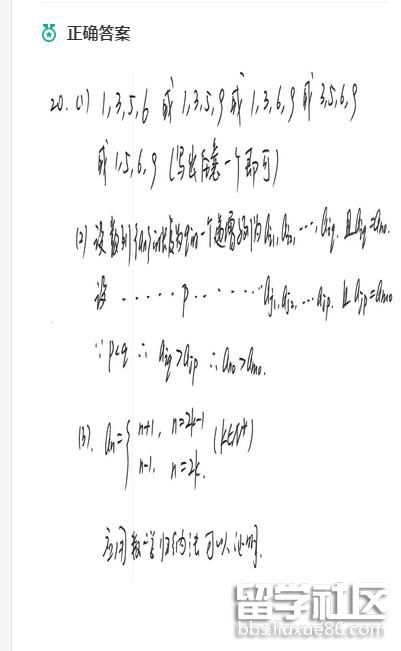 正确答案
20. (1) 1,3,5,6 或 1,3,5,9 或 1,3,6,9 或 3,5,6,9
或 1,5,6,9 (写出任意一个即可)
(2) 设数列{an}中长度为q的一个递增子列为ai1,ai2,…,aiq. 且aiq=an0.
设 ····· p ········ aj1,aj2,…ajp. 且ajp=am0
∵p<q ∴ aiq>ajp ∴an0>am0.
(3). an={ n+1, n=2k-1 (k∈N*)
n-1, n=2k.
应用数学归纳法可以证明.
留学社区
bbs.liuxue86.com